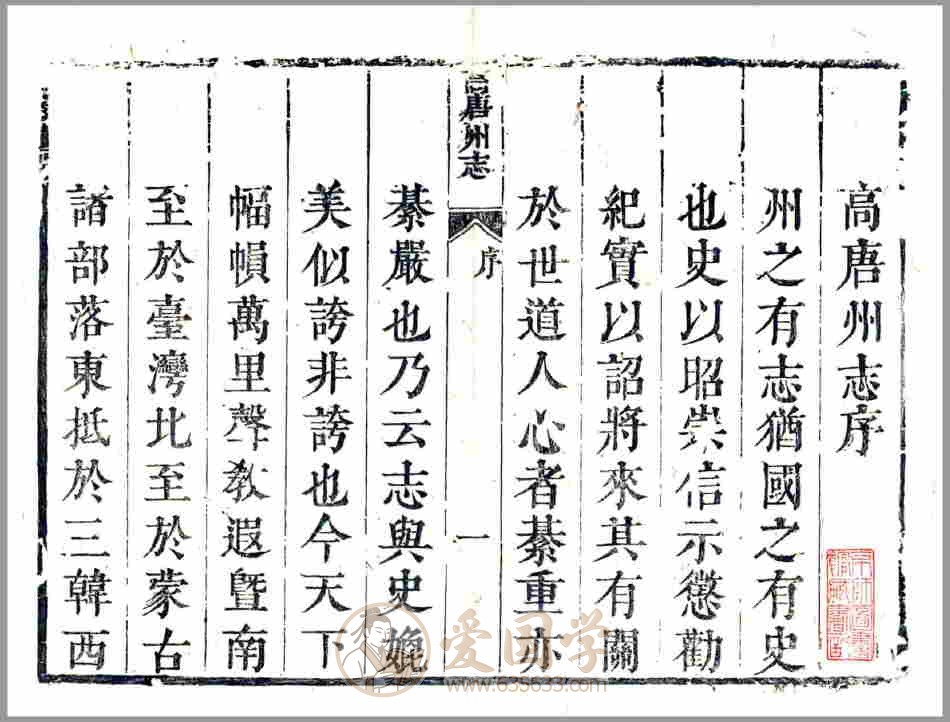 高唐州志序
州之有志猶國之有史
也史以昭崇信示懲勸
紀實以詔將來其有關
於世道人心者綦重亦
高唐州志
序
一
綦嚴也乃云志與史媲
美似誇非誇也今天下
幅幀萬里聲教遐曁南
至於臺灣北至於蒙古
諸部落東抵於三韓西
爱国学
www.653653.com